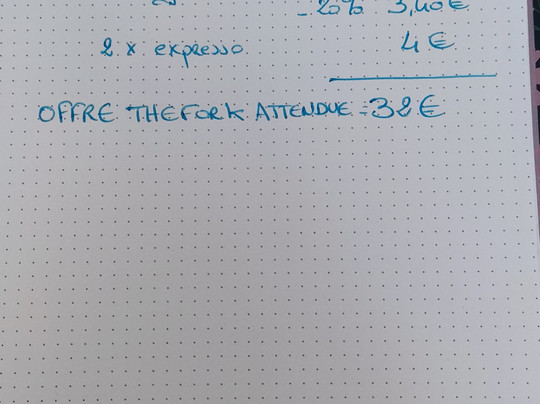 - 20% 3,40€
2 x expresso. 4€
OFFRE THEFORK ATTENDUE = 32€